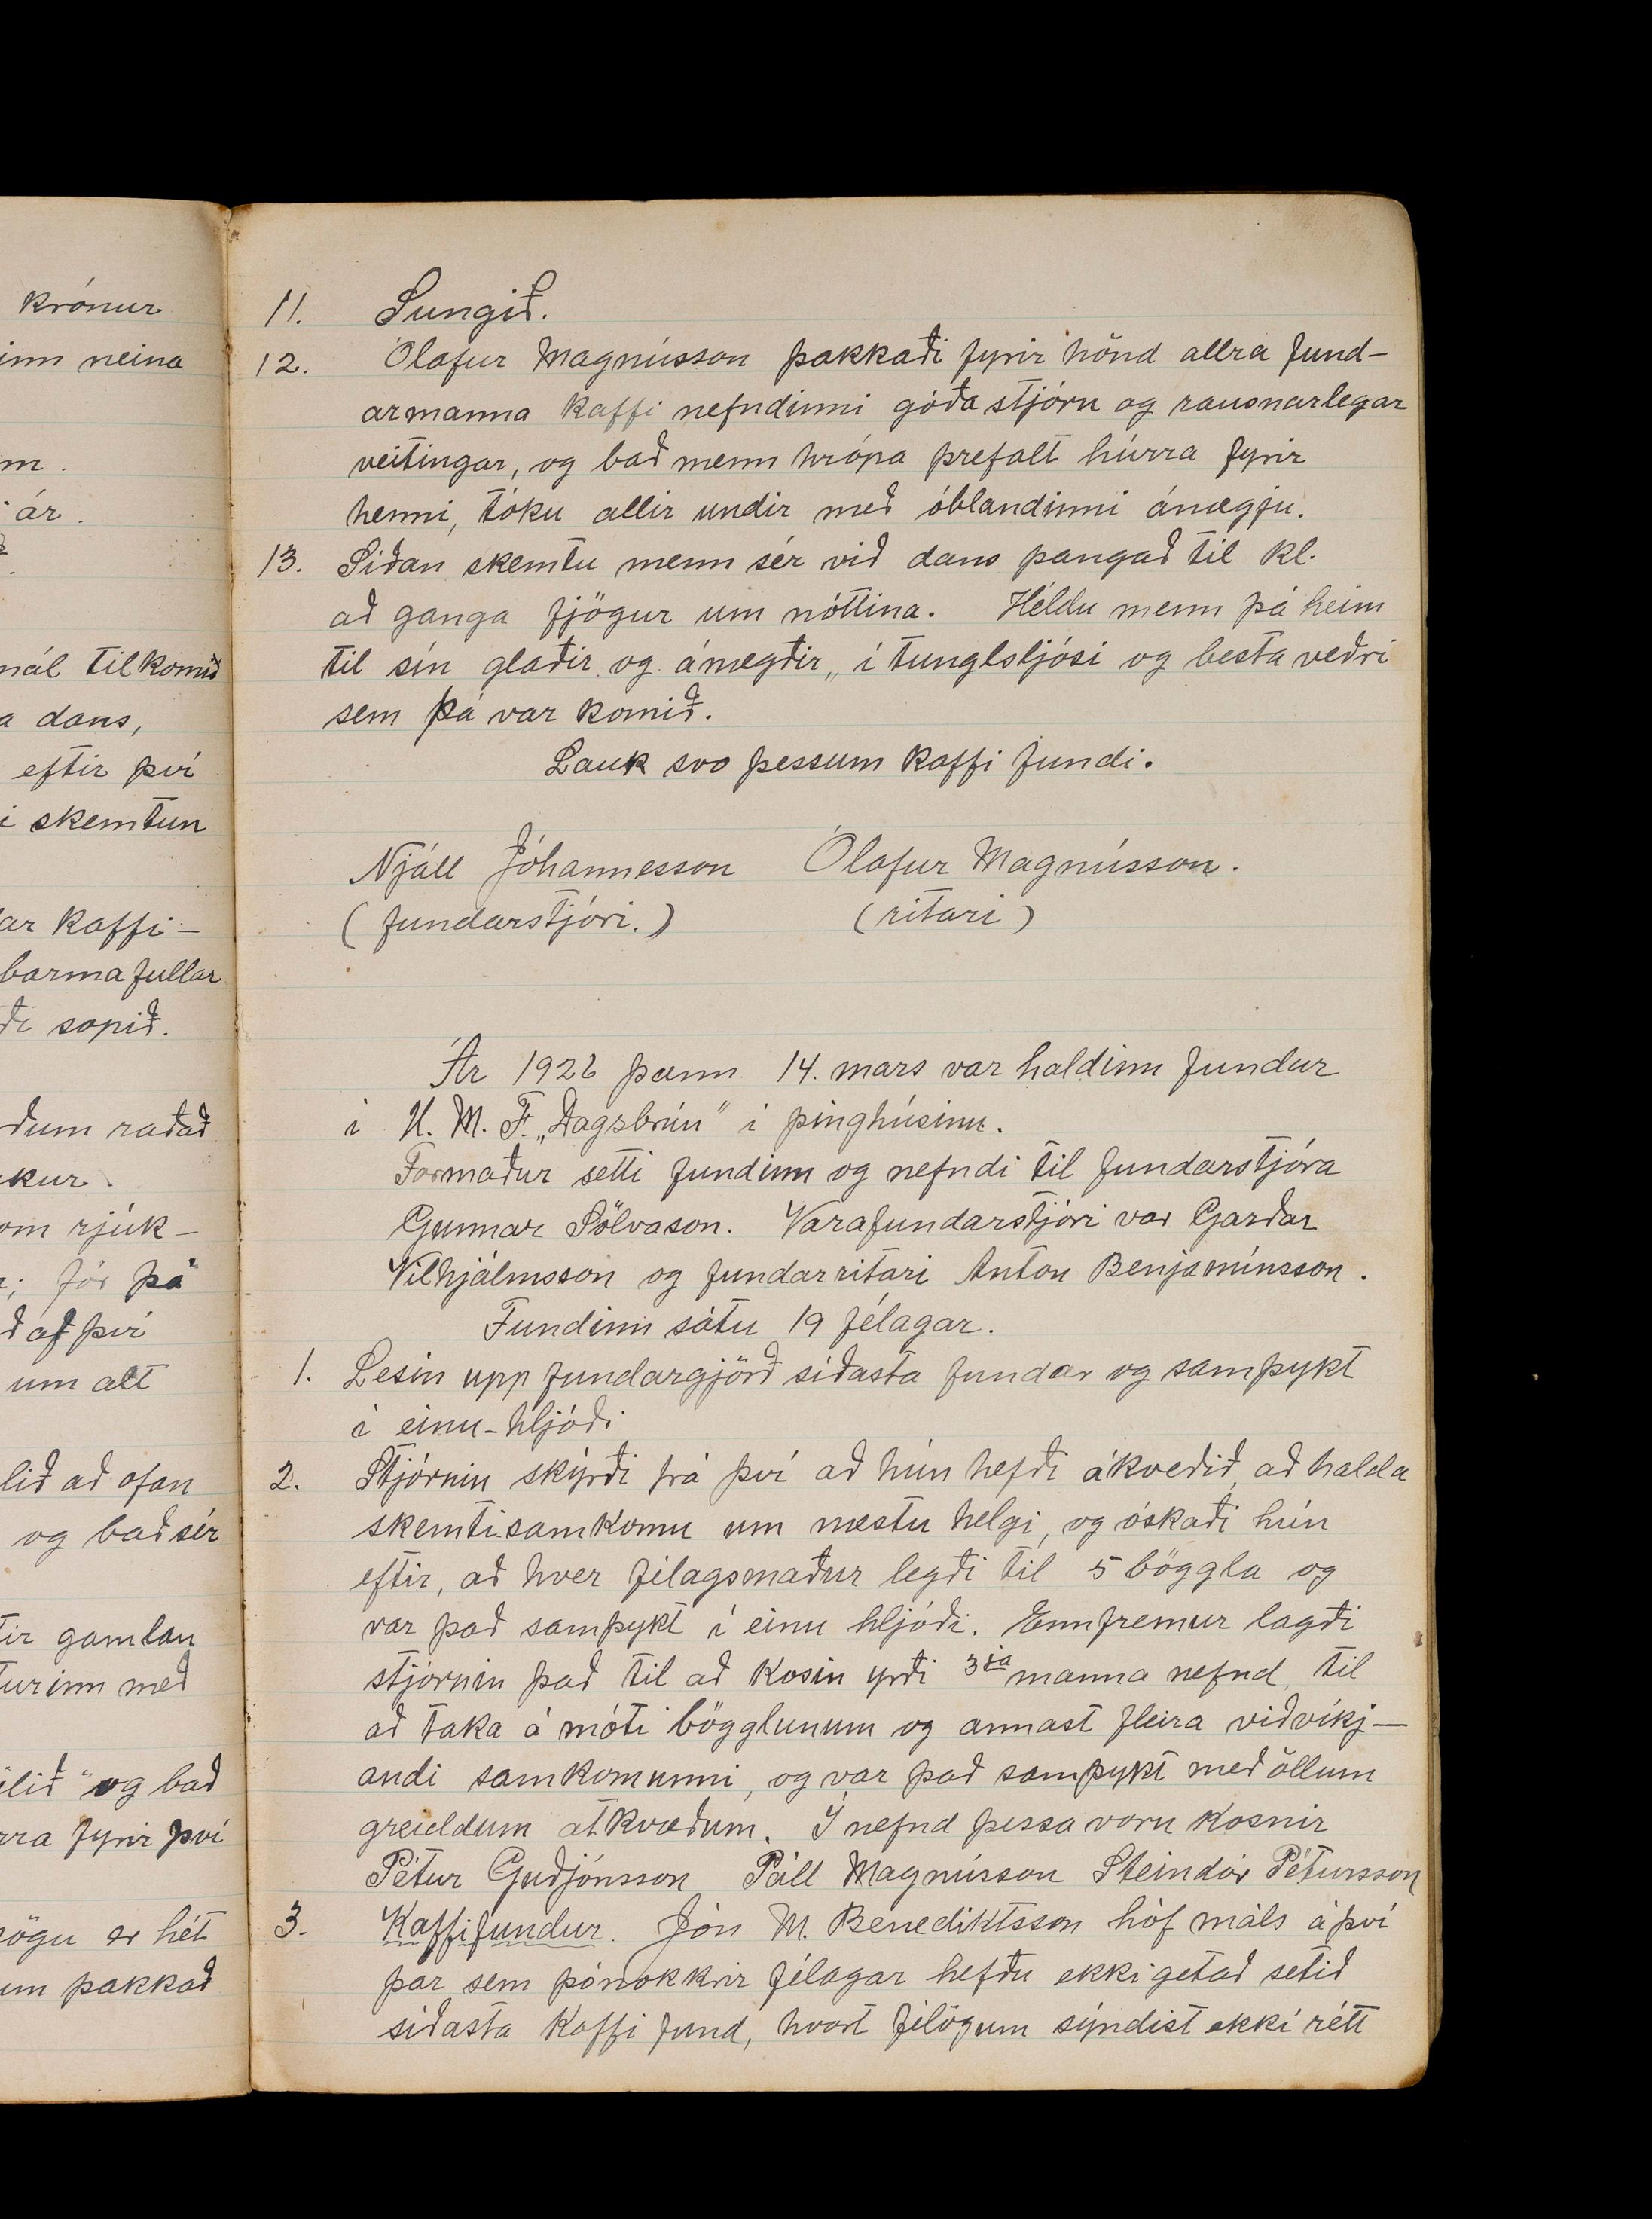 krónur
inn neina
m.
ár.
mál tilkomið
a dans,
eftir því
i skemtun
ar kaffi-
barmafullar
ði sopið.
ðum raðað
kur.
om rjúk-
; fór þá
ð af því
um alt
lið að ofan
og bað sér
tir gamlan
turinn með
ilið" og bað
rra fyrir því
sögu er hét
um þakkað
11. Sungið.
12. Ólafur Magnússon þakkaði fyrir hönd allra fund-
armanna kaffi nefndinni góða stjórn og rausnarlegar
veitingar, og bað menn hrópa þrefalt húrra fyrir
henni, tóku allir undir með óblandinni ánægju.
13. Síðan skemtu menn sér við dans þangað til kl.
að ganga fjögur um nóttina. Héldu menn þá heim
til sín glaðir og ánægðir, í tunglsljósi og besta veðri
sem þá var komið.
Lauk svo þessum kaffi fundi.
Njáll Jóhannesson Ólafur Magnússon.
(fundarstjóri.) (ritari)
Ár 1926 þann 14. mars var haldinn fundur
í U. M. F. „Dagsbrún" í þinghúsinu.
Formaður setti fundinn og nefndi til fundarstjóra
Gunnar Sölvason. Varafundarstjóri var Garðar
Vilhjálmsson og fundarritari Anton Benjamínsson.
Fundinn sátu 19 félagar.
1. Lesin upp fundargjörð síðasta fundar og samþykt
í einu-hljóði
2. Stjórnin skýrði frá því að hún hefði ákveðið, að halda
skemtisamkomu um næstu helgi, og óskaði hún
eftir, að hver félagsmaður legði til 5 böggla og
var það samþykt í einu hljóði. Ennfremur lagði
stjórnin það til að kosin yrði 3ja manna nefnd, til
að taka á móti bögglunum og annast fleira viðvíkj-
andi samkomunni, og var það samþykt með öllum
greiddum atkvæðum. Í nefnd þessa voru kosnir
Pétur Guðjónsson Páll Magnússon Steindór Pétursson
3. Kaffifundur. Jón M. Benediktsson hóf máls á því
þar sem þónokkrir félagar hefðu ekki getað setið
síðasta kaffi fund, hvort félögum sýndist ekki rétt